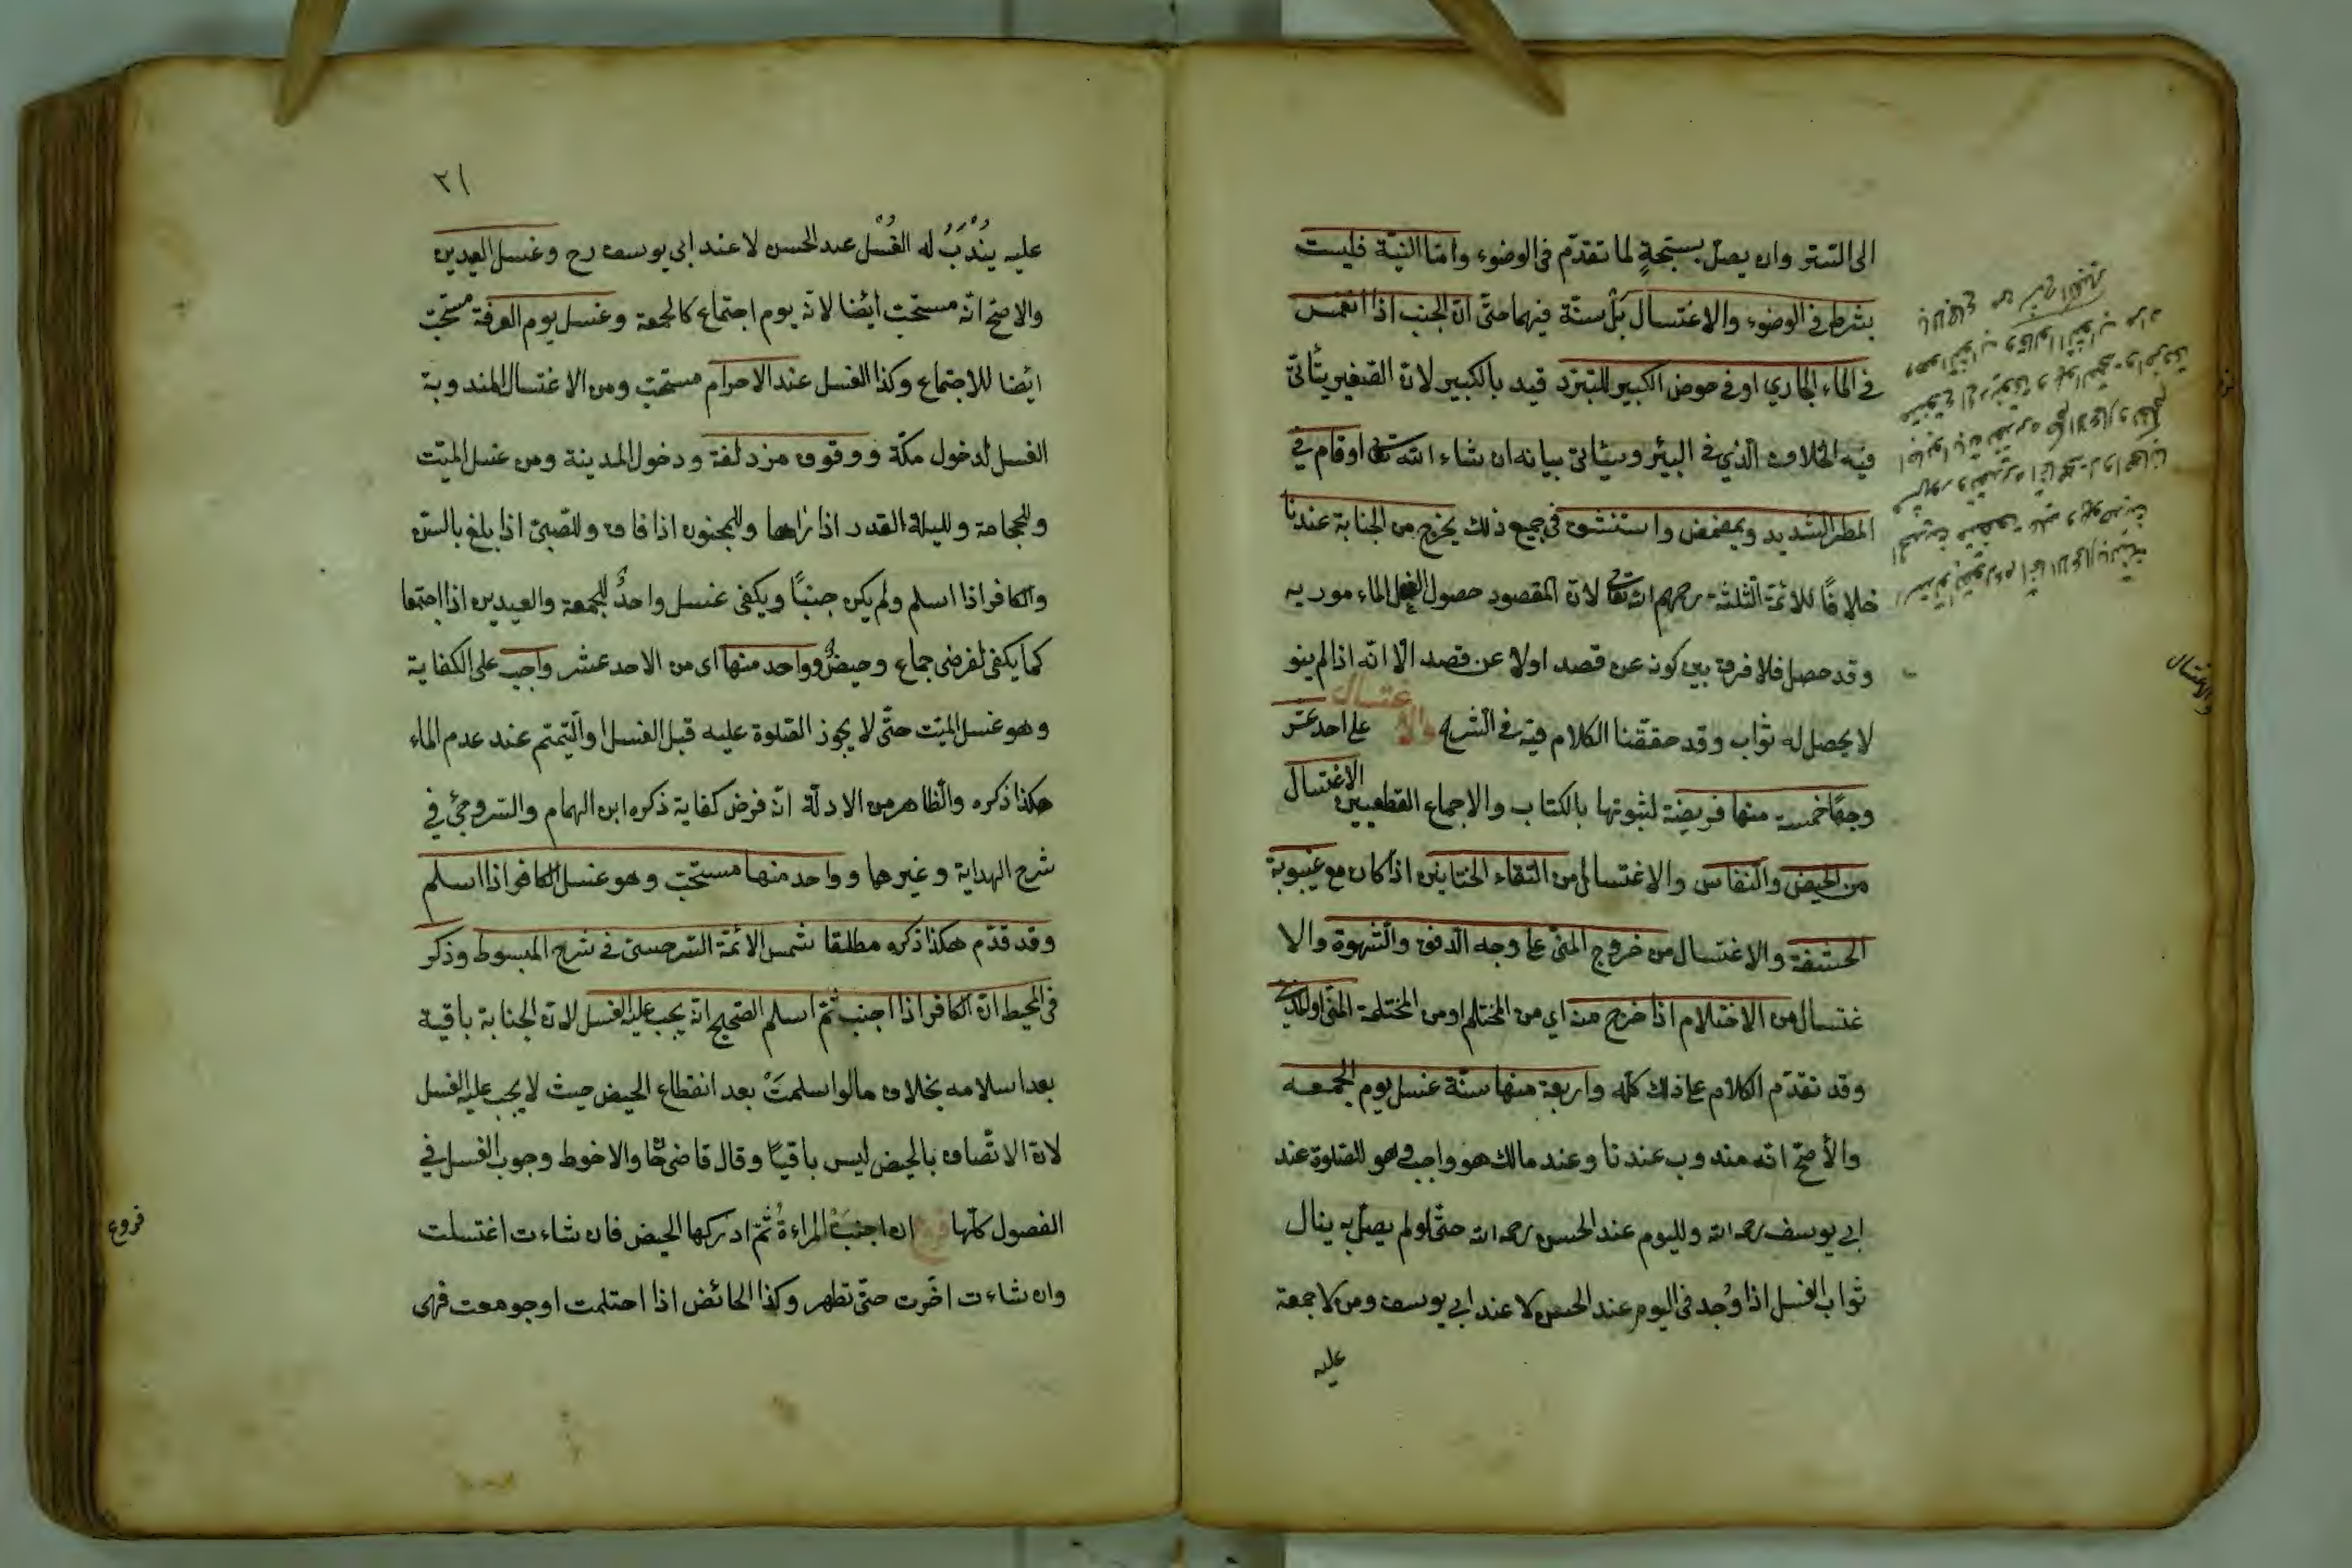 الى التستر وان يصلى بسبحةٍ لما تقدّم فى الوضوء وامّا النيّة فليست
بشرط فى الوضوء والاغتسال بلْ سنّة فيهما حتّى انّ الجنب اذا انغمس
فى الماء الجاري او فى حوض الكبير للتبرّد قيد بالكبير لانّ الصّغير يتأتىّ
فيه الخلاف الّذي فى البئر وسيأتى بيانه ان شاء الله تعالى او قام في
المطر الشديد ويمضمض واستنشق فى جميع ذلك يخرج من الجنابة عندنا
خلافًا للائمّة الثلثة رحمهم الله تعالى لانّ المقصود حصول الفعل الماء مور به
وقد حصل فلا فرق بين كونه عن قصد اولا عن قصد الّا انّه اذا لم ينو
لا يحصل له ثواب وقد حققنا الكلام فيه فى الشرح والا عتسال على احد عشر
وجهًا خمسة منها فريضة لثبوتها بالكتاب والاجماع القطعيين الاغتسال
من الحيض والنفاس والاغتسال من التقاء الختانين اذا كان مع غيبوبة
الحشفة والاغتسال من خروج المنىّ على وجه الدفق والشهوة والا
غتسال من الاحتلام اذا خرج منه اي من المحتلم او من المحتلمة المنى او المذي
وقد تقدّم الكلام على ذلك كله واربعة منها سنّة غسل يوم الجمعه
والأصحّ انّه مندوب عندنا وعند مالك هو واجب وهو للصّلوة عند
ابي يوسف رحمه الله ولليوم عند الحسن رحمه الله حتّى لو لم يصلّ به ينال
ثواب الغسل اذا وُجد فى اليوم عند الحسن لا عند ابي يوسف ومن لا جمعة
عليه
والاغتسال
٢١
عليه يُنْدَبُ له الغُسْل عند الحسن لا عند ابي يوسف رح وغسل العيدين
والاصحّ انّه مستحبّ أيضا لانّه يوم اجتماع كالجمعة وغسل يوم العرفة مستحبّ
ايضا للاجتماع وكذا الغسل عند الاحرام مستحبّ ومن الاغتسال المندوبة
الغسل لدخول مكّة ووقوف مزدلفة ودخول المدينة ومن غسل الميّت
وللحجامة ولليلة القدر اذا راها وللمجنون اذا فاق وللصّبىّ اذا بلغ بالسّن
والكافر اذا اسلم ولم يكن جنبًا ويكفى غسل واحدٌ للجمعة والعيدين اذا اجتمعا
كما يكفى لفرضى جماع وحيضٌ وواحد منها اى من الاحد عشر واجب على الكفاية
وهو غسل الميّت حتّى لا يجوز الصّلوة عليه قبل الغسل او التّيمّم عند عدم الماء
هكذا ذكره والظاهر من الادلّة انّه فرض كفاية ذكره ابن الهمام والسروجىّ في
شرح الهداية وغيرها وواحد منها مستحبّ وهو غسل الكافر اذا اسلم
وقد قدّم هكذا ذكره مطلقا شمس الائمّة السّرخسىّ فى شرح المبسوط وذكر
فى المحيط انّ الكافر اذا اجنب ثمّ اسلم الصحيح انّه يجب عليه الغسل لانّ الجنابة باقية
بعد اسلامه بخلاف ما لو اسلمتْ بعد انقطاع الحيض حيث لا يجب عليه الغسل
لانّ الاتّصاف بالحيض ليس باقيًا وقال قاضى خان والاحوط وجوب الغسل في
الفصول كلّها فروع ان اجنبتْ المراءةُ ثمّ ادركها الحيض فان شاءت اغتسلت
وان شاءت اخّرت حتّى تطهر وكذا الحائض اذا احتلمت او جومعت فهى
فروع